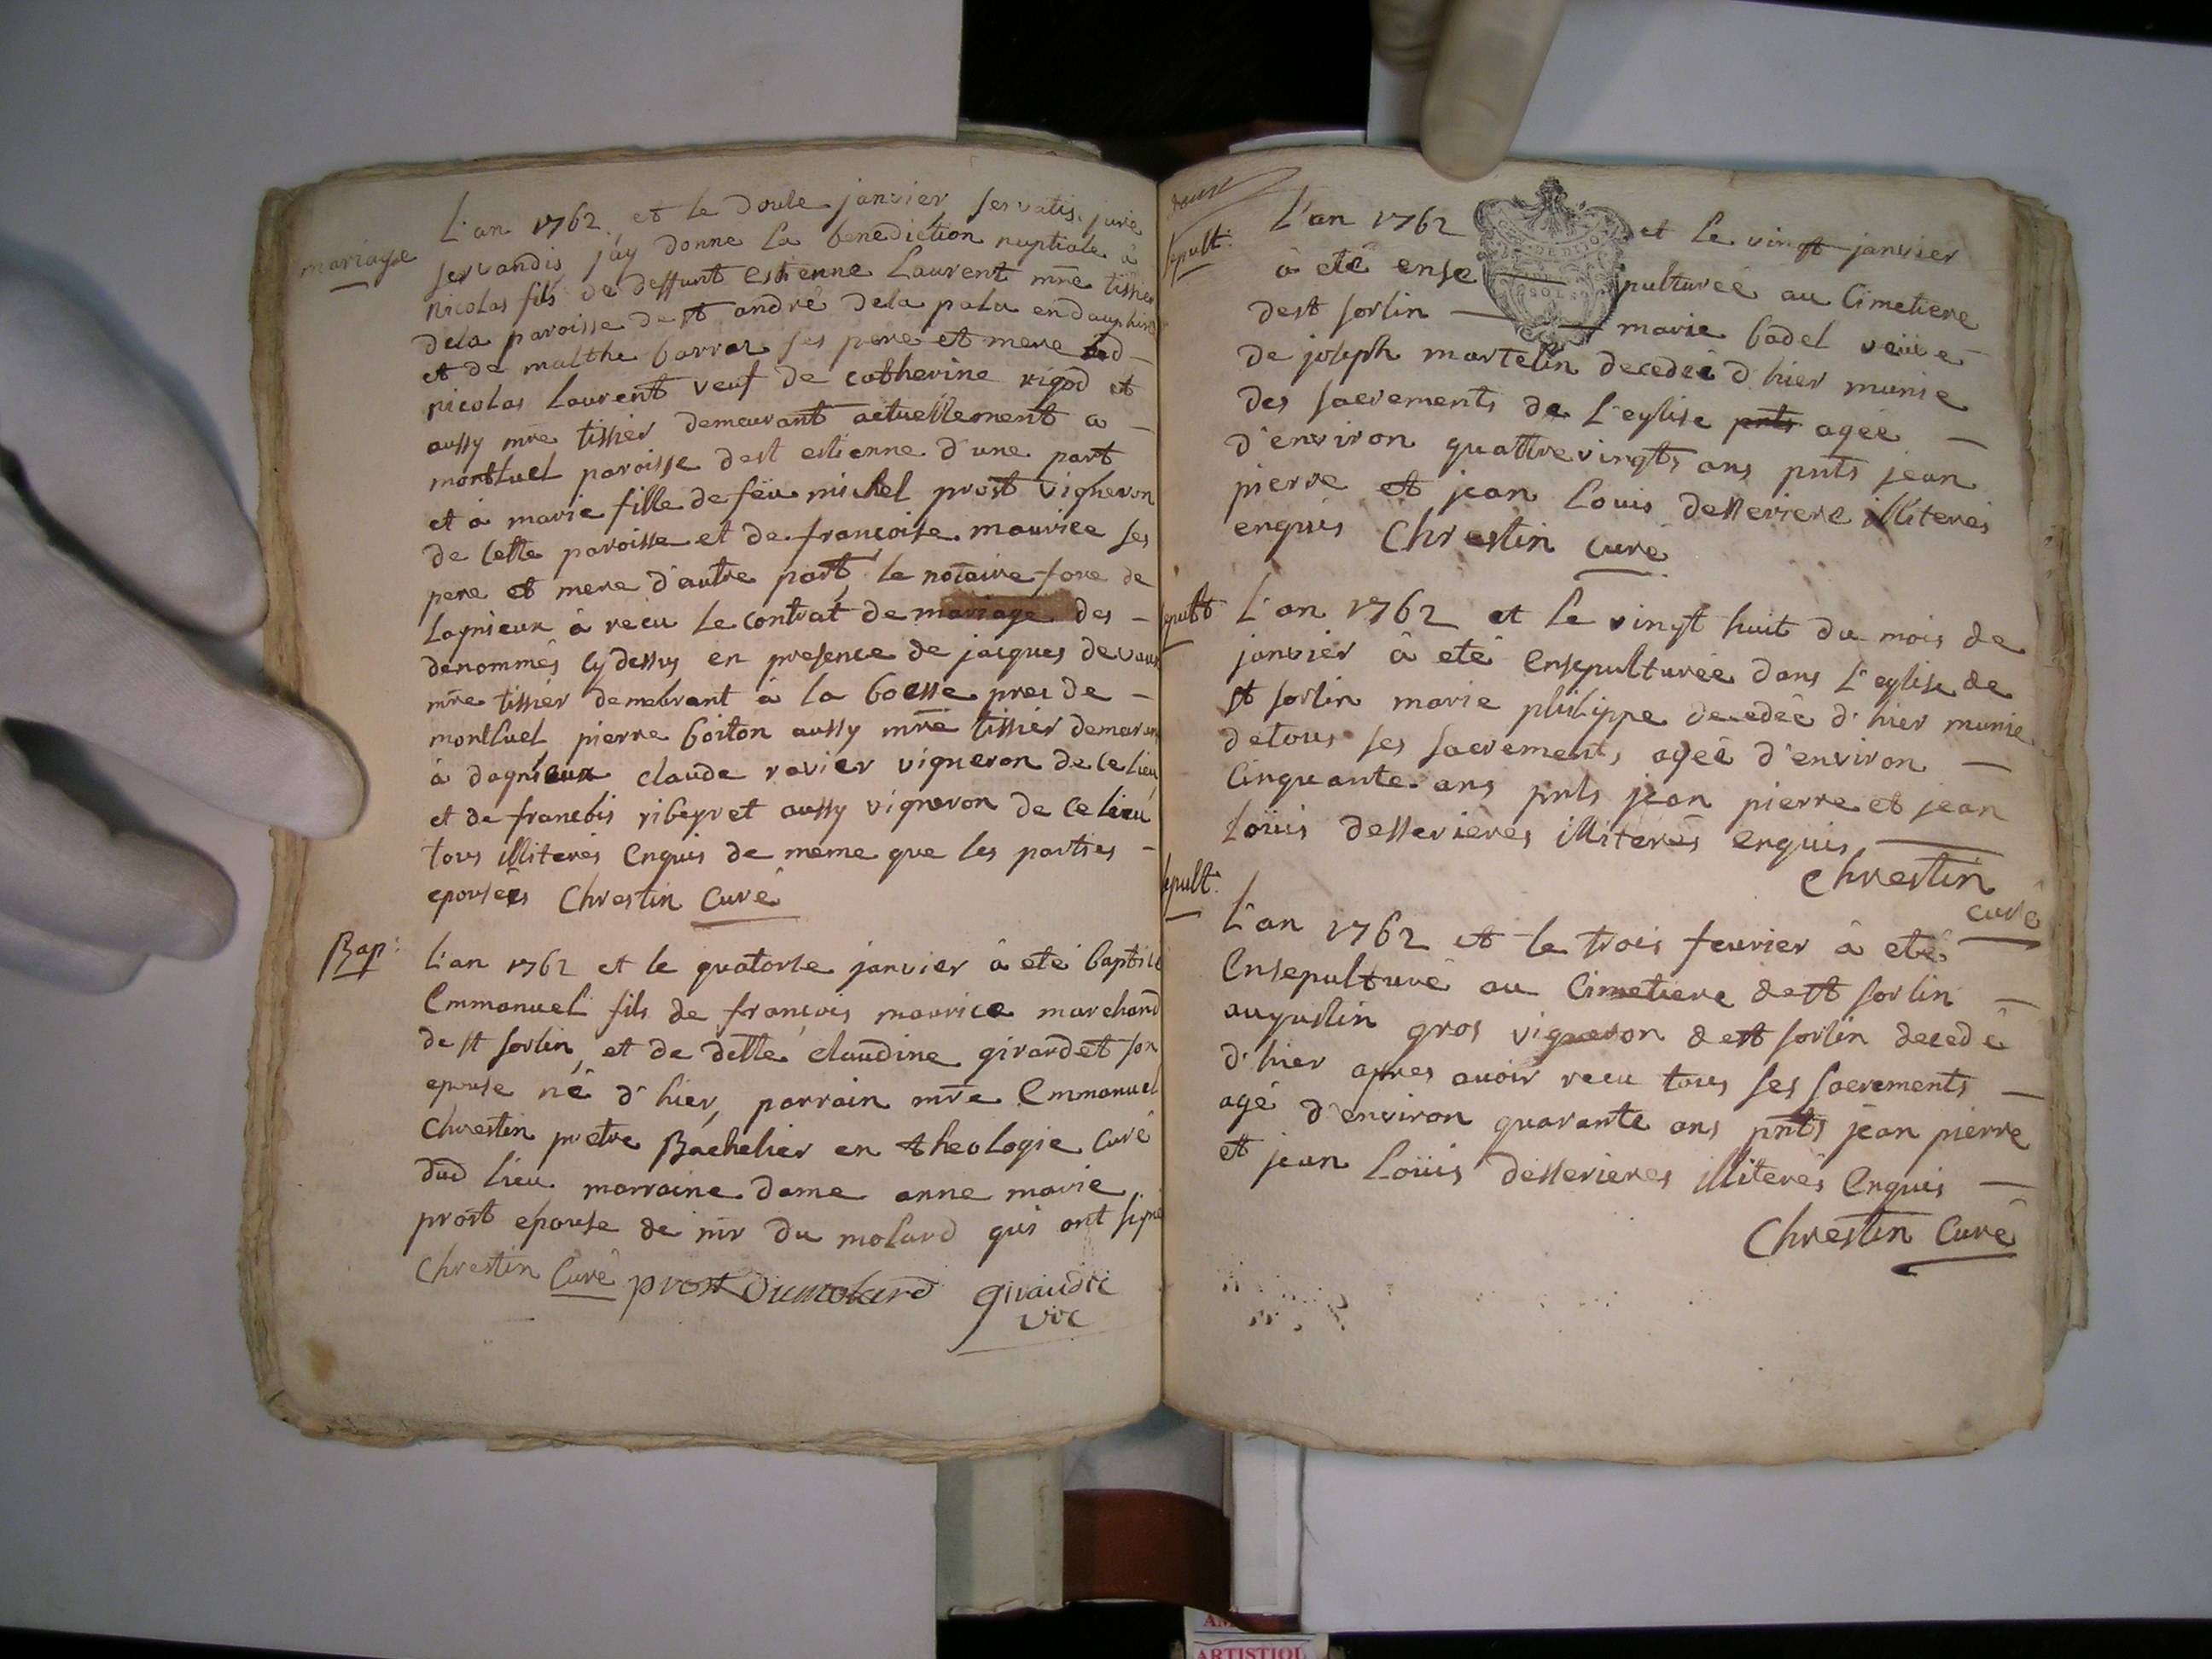 mariage
L'an 1762. et le douse janvier servatis jure
servandis jáy donne la benediction nuptiale à
nicolas fils de deffunt estienne Laurent mre tissier
dela paroisse de st andré dela palu endauphiné
et de malthe barraz ses pere et mere led
nicolas Laurent veuf de catherine rigod et
aussy mre tissier demeurant actuellement a
montluel paroisse dest estienne d'une part
et à marie fille de feu michel prost vigneron
de cette paroisse et de francoise maurice ses
pere et mere d'autre part, le notaire fore de
Lagnieux à recu le contrat de mariage des
denommés cydessus en presence de jacques devaux
mre tissier demeurant à la boesse pres de
montluel pierre boiton aussy mre tissier demeurant
à dagnieux claude ravier vigneron de ce lieu
et de francois ribeyret aussy vigneron de ce lieu
tous illiterés enquis de meme que les parties
epousées Chrestin Curé
Bap:
L'an 1762 et le quatorse janvier à eté baptisé
Emmanuel fils de francois maurice marchand
de st sorlin, et de delle claudine girardet son
epouse né d'hier, parrain mre Emmanuel
Chrestin pretre Bachelier en theologie Curé
dud lieu marraine dame anne marie
prost epouse de mr du molard qui ont signé
Chrestin Curé prost Dumolard
sepult:
L'an 1762 et le vingt janvier
à eté ense pulturée au Cimetiere
dest sorlin marie badel veuve
de joseph martelin decedée d'hier munie
des sacrements de L'eglise pnts agée
d'environ quattrevingts ans pnts jean
pierre et jean Louis desserriere illiterés
enquis Chrestin curé
sepult
L'an 1762 et le vingt huit du mois de
janvier à eté ensepulturée dans L'eglise de
st sorlin marie philippe decedée d'hier munie
detous ses sacrements agée d'environ
Cinquante ans pnts jean pierre et jean
Loüis desserieres illiterés enquis
Chrestin
curé
sepult:
L'an 1762 et le trois feurier à eté
Ensepulturé au Cimetiere de st sorlin
augustin gros vigneron de st sorlin decedé
d'hier apres avoir recu tous ses sacrements
agé d'environ quarante ans pnts jean pierre
et jean Loüis desserieres illiterés Enquis
Chrestin Curé